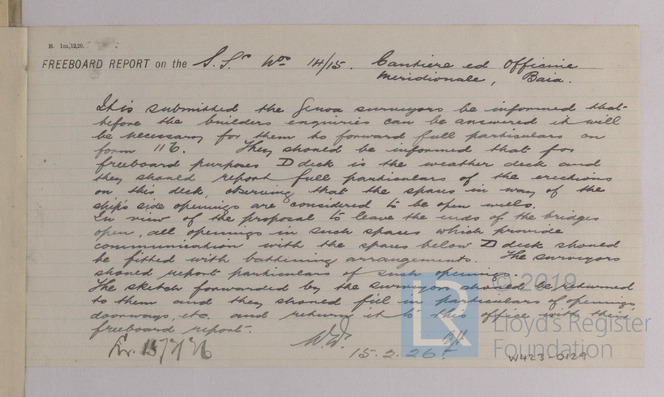 R. 1m,12,20.
FREEBOARD REPORT on the S. Srs Nos 14/15. Cantiere ed Officine
Meridionale, Baia.
It is submitted the Genoa surveyors be informed that
before the builders enquiries can be answered it will
be necessary for them to forward full particulars on
form 116. They should be informed that for
freeboard purposes D deck is the weather deck and
they should report full particulars of the erections
on this deck, observing that the spaces in way of the
ship's side openings are considered to be open wells.
In view of the proposal to leave the ends of the bridges
open, all openings in such spaces which provide
communication with the spaces below D deck should
be fitted with battening arrangements. The surveyors
should report particulars of such openings.
The sketch forwarded by the surveyors should be returned
to them and they should fill in particulars of openings,
doorways, etc. and return it to this office with their
freeboard report.
15/2/26
W.W.
15.2.26
W423-0129
© 2019
Lloyd's Register
Foundation
LR